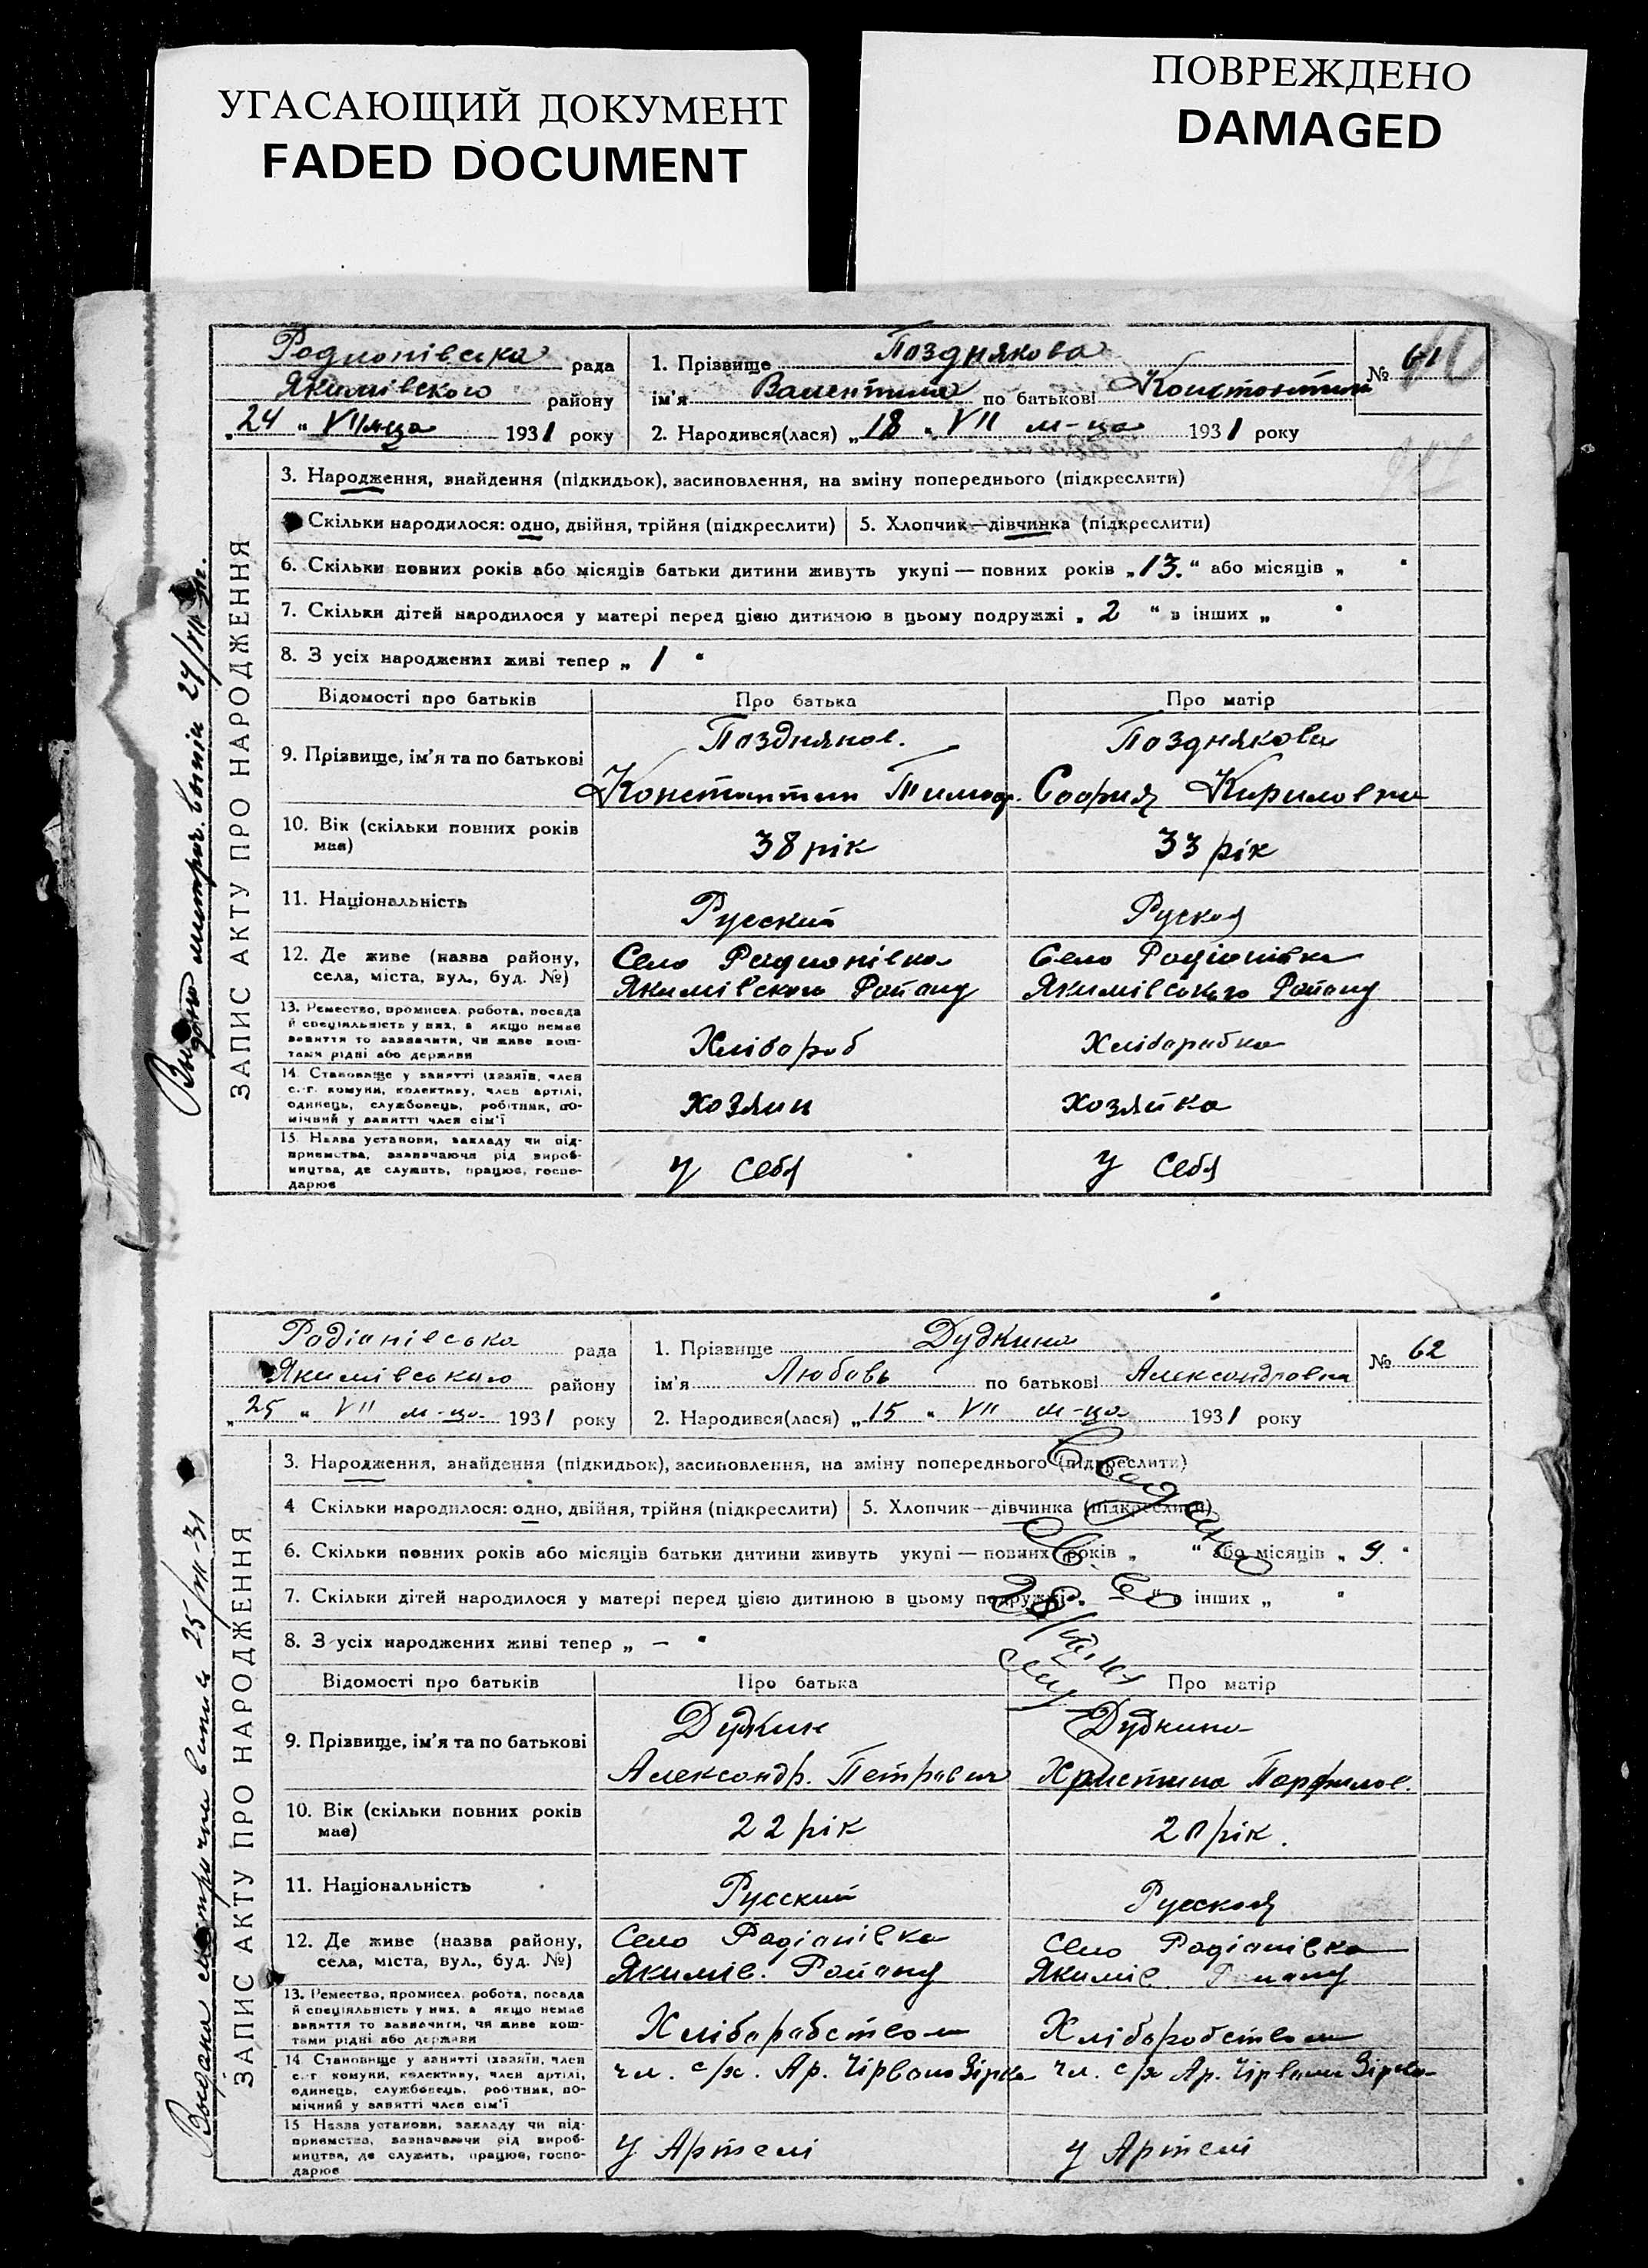 УГАСАЮЩИЙ ДОКУМЕНТ
FADED DOCUMENT
ПОВРЕЖДЕНО
DAMAGED
Родионівска рада
Якимівского району
„24“ VII м-ца 1931 року
1. Прізвище Позднякова
ім'я Валентина по батькові Константин
2. Народився(лася) „18“ VII м-ца 1931 року
№ 61
ЗАПИС АКТУ ПРО НАРОДЖЕННЯ
3. Народження, знайдення (підкидьок), засиновлення, на зміну попереднього (підкреслити)
Скільки народилося: одно, двійня, трійня (підкреслити) 5. Хлопчик—дівчинка (підкреслити)
6. Скільки повних років або місяців батьки дитини живуть укупі — повних років „13.“ або місяців „ “
7. Скільки дітей народилося у матері перед цією дитиною в цьому подружжі „2“ в інших „ “
8. З усіх народжених живі тепер „1“
Відомості про батьків Про батька Про матір
9. Прізвище, ім'я та по батькові
Поздняков.
Константин Тимоф.
Позднякова
София Кириловна
10. Вік (скільки повних років має) 38 рік 33 рік
11. Національність Русский Руская
12. Де живе (назва району, села, міста, вул., буд. №)
Село Родионівка
Якимівского Району
Село Родіонівка
Якимівського Району
13. Ремество, промисел, робота, посада й спеціяльність у них, а якщо немає заняття то зазначити, чи живе коштами рідні або держави
Хлібороб Хліборобка
14. Становище у занятті (хазяїн, член с.-г. комуни, колективу, член артілі, одинець, службовець, робітник, помічний у занятті член сім'ї
хозяин хозяйка
15. Назва установи, закладу чи підприємства, зазначаючи рід виробництва, де служить, працює, господарює
у себя у себя
Родіонівська рада
Якимівського району
„25“ VII м-ца 1931 року
1. Прізвище Дудкина
ім'я Любовь по батькові Александровна
2. Народився(лася) „15“ VII м-ца 1931 року
№ 62
ЗАПИС АКТУ ПРО НАРОДЖЕННЯ
3. Народження, знайдення (підкидьок), засиновлення, на зміну попереднього (підкреслити)
4 Скільки народилося: одно, двійня, трійня (підкреслити) 5. Хлопчик—дівчинка (підкреслити)
6. Скільки повних років або місяців батьки дитини живуть укупі — повних років „ “ або місяців „9.“
7. Скільки дітей народилося у матері перед цією дитиною в цьому подружжі „–“ в інших „ “
8. З усіх народжених живі тепер „–“
Відомості про батьків Про батька Про матір
9. Прізвище, ім'я та по батькові
Дудкин
Александр. Петрович
Дудкина
Христина Парфилов.
10. Вік (скільки повних років має) 22 рік 20 рік.
11. Національність Русский Русская
12. Де живе (назва району, села, міста, вул., буд. №)
Село Родіонівка
Якимів. Району
Село Родіонівка
Якимів. Району
13. Ремество, промисел, робота, посада й спеціяльність у них, а якщо немає заняття то зазначити, чи живе коштами рідні або держави
Хліборобством Хліборобством
14. Становище у занятті (хазяїн, член с.-г. комуни, колективу, член артілі, одинець, службовець, робітник, помічний у занятті член сім'ї
чл. с/х. Ар. Чірвона Зірка чл. с/х Ар. Чірвона Зірка
15. Назва установи, закладу чи підприємства, зазначаючи рід виробництва, де служить, працює, господарює
у Артелі у Артелі